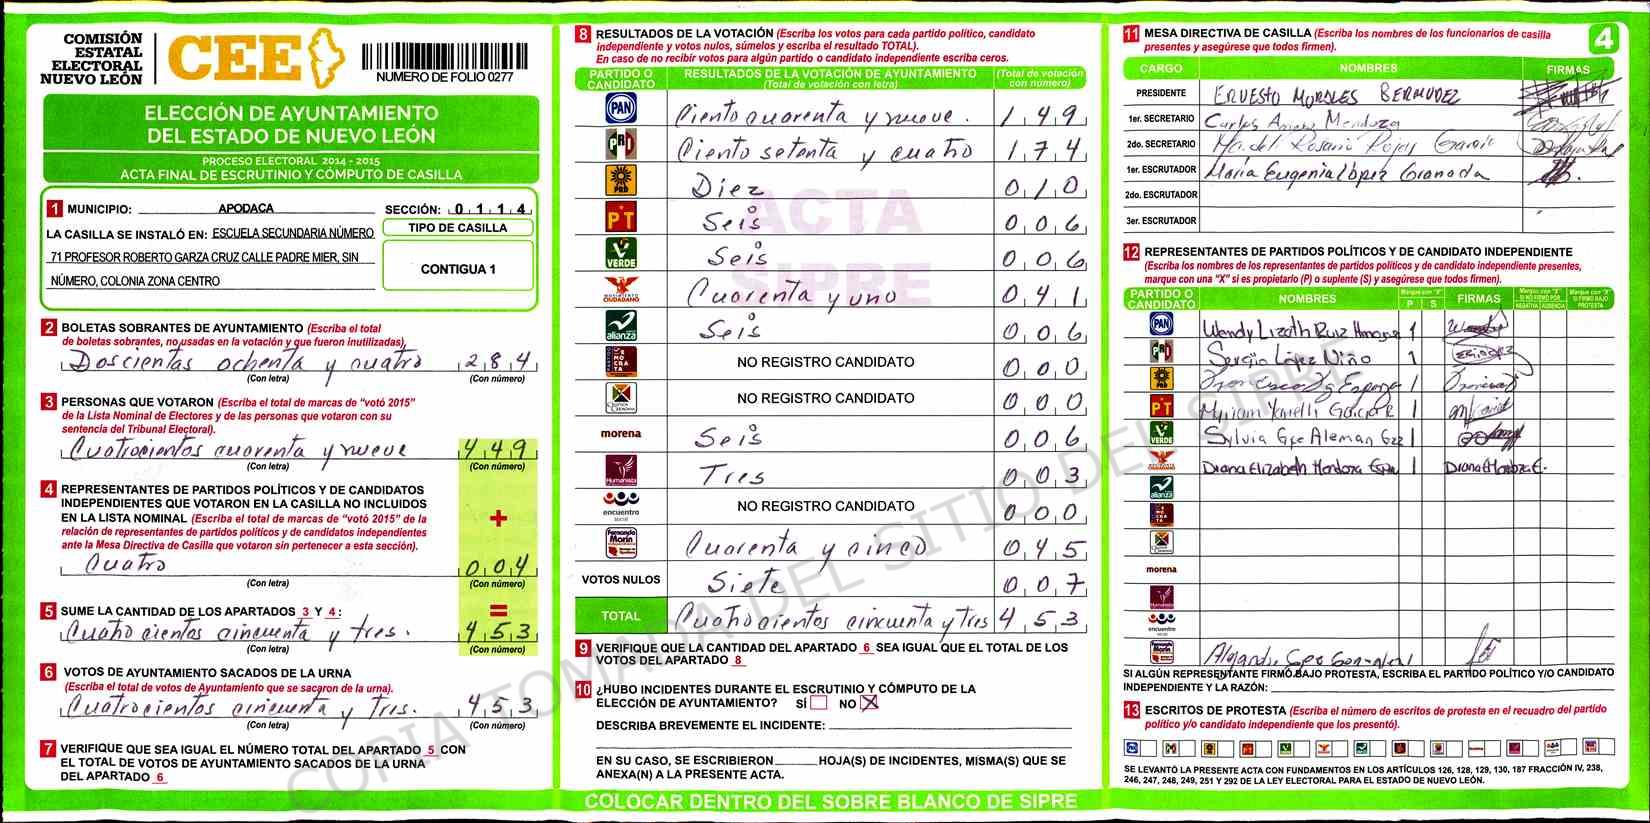 COMISIÓN
ESTATAL
ELECTORAL
NUEVO LEÓN
CEE
NUMERO DE FOLIO 0277
ELECCIÓN DE AYUNTAMIENTO
DEL ESTADO DE NUEVO LEÓN
PROCESO ELECTORAL 2014 - 2015
ACTA FINAL DE ESCRUTINIO Y CÓMPUTO DE CASILLA
1 MUNICIPIO: APODACA SECCIÓN: 0114
LA CASILLA SE INSTALÓ EN: ESCUELA SECUNDARIA NÚMERO
71 PROFESOR ROBERTO GARZA CRUZ CALLE PADRE MIER, SIN
NÚMERO, COLONIA ZONA CENTRO
TIPO DE CASILLA
CONTIGUA 1
2 BOLETAS SOBRANTES DE AYUNTAMIENTO (Escriba el total
de boletas sobrantes, no usadas en la votación y que fueron inutilizadas).
Doscientas ochenta y cuatro 284
(Con letra) (Con número)
3 PERSONAS QUE VOTARON (Escriba el total de marcas de "votó 2015"
de la Lista Nominal de Electores y de las personas que votaron con su
sentencia del Tribunal Electoral).
Cuatrocientos cuarenta y nueve 449
(Con letra) (Con número)
4 REPRESENTANTES DE PARTIDOS POLÍTICOS Y DE CANDIDATOS
INDEPENDIENTES QUE VOTARON EN LA CASILLA NO INCLUIDOS
EN LA LISTA NOMINAL (Escriba el total de marcas de "votó 2015" de la
relación de representantes de partidos políticos y de candidatos independientes
ante la Mesa Directiva de Casilla que votaron sin pertenecer a esta sección).
+
Cuatro 004
(Con letra) (Con número)
5 SUME LA CANTIDAD DE LOS APARTADOS 3 Y 4: =
Cuatro cientos cincuenta y tres. 453
(Con letra) (Con número)
6 VOTOS DE AYUNTAMIENTO SACADOS DE LA URNA
(Escriba el total de votos de Ayuntamiento que se sacaron de la urna).
Cuatrocientos cincuenta y Tres. 453
(Con letra) (Con número)
7 VERIFIQUE QUE SEA IGUAL EL NÚMERO TOTAL DEL APARTADO 5 CON
EL TOTAL DE VOTOS DE AYUNTAMIENTO SACADOS DE LA URNA
DEL APARTADO 6
8 RESULTADOS DE LA VOTACIÓN (Escriba los votos para cada partido político, candidato
independiente y votos nulos, súmelos y escriba el resultado TOTAL).
En caso de no recibir votos para algún partido o candidato independiente escriba ceros.
PARTIDO O CANDIDATO RESULTADOS DE LA VOTACIÓN DE AYUNTAMIENTO (Total de votación con letra) (Total de votación con número)
PAN Ciento cuarenta y nueve. 149
PRD Ciento setenta y cuatro 174
PRD Diez 010
PT Seis 006
VERDE Seis 006
MOVIMIENTO CIUDADANO Cuarenta y uno 041
alianza Seis 006
DEMOCRATA NO REGISTRO CANDIDATO 000
NO REGISTRO CANDIDATO 000
morena Seis 006
Humanista Tres 003
encuentro social NO REGISTRO CANDIDATO 000
Fernando Marín Cuarenta y cinco 045
VOTOS NULOS Siete 007
TOTAL Cuatrocientos cincuenta y tres 453
ACTA
SIPRE
9 VERIFIQUE QUE LA CANTIDAD DEL APARTADO 6 SEA IGUAL QUE EL TOTAL DE LOS
VOTOS DEL APARTADO 8
10 ¿HUBO INCIDENTES DURANTE EL ESCRUTINIO Y CÓMPUTO DE LA
ELECCIÓN DE AYUNTAMIENTO? SÍ NO X
DESCRIBA BREVEMENTE EL INCIDENTE:
EN SU CASO, SE ESCRIBIERON HOJA(S) DE INCIDENTES, MISMA(S) QUE SE
ANEXA(N) A LA PRESENTE ACTA.
COLOCAR DENTRO DEL SOBRE BLANCO DE SIPRE
11 MESA DIRECTIVA DE CASILLA (Escriba los nombres de los funcionarios de casilla
presentes y asegúrese que todos firmen).
4
CARGO NOMBRES FIRMAS
PRESIDENTE ERNESTO MORALES BERMUDEZ
1er. SECRETARIO Carlos Mendoza
2do. SECRETARIO Rosario Rojas
1er. ESCRUTADOR María Eugenia López Granada
2do. ESCRUTADOR
3er. ESCRUTADOR
12 REPRESENTANTES DE PARTIDOS POLÍTICOS Y DE CANDIDATO INDEPENDIENTE
(Escriba los nombres de los representantes de partidos políticos y de candidato independiente presentes,
marque con una "X" si es propietario (P) o suplente (S) y asegúrese que todos firmen).
PARTIDO O CANDIDATO NOMBRES Marque con "X" P S FIRMAS Marque con "X" SI NO FIRMÓ POR NEGATIVA AUSENCIA Marque con "X" SI FIRMÓ BAJO PROTESTA
PAN Wendy Lizeth Ruiz 1
PRD Sergio López Niño 1
PRD Francisco 1
PT Myriam Yanelli 1
VERDE Sylvia Gpe Aleman Gzz 1
Diana Elizabeth Mendoza 1 Diana E Mendoza E.
alianza
morena
Humanista
encuentro social
Fernando Marín
SI ALGÚN REPRESENTANTE FIRMÓ BAJO PROTESTA, ESCRIBA EL PARTIDO POLÍTICO Y/O CANDIDATO
INDEPENDIENTE Y LA RAZÓN:
13 ESCRITOS DE PROTESTA (Escriba el número de escritos de protesta en el recuadro del partido
político y/o candidato independiente que los presentó).
SE LEVANTÓ LA PRESENTE ACTA CON FUNDAMENTOS EN LOS ARTÍCULOS 126, 128, 129, 130, 187 FRACCIÓN IV, 238,
246, 247, 248, 249, 251 Y 292 DE LA LEY ELECTORAL PARA EL ESTADO DE NUEVO LEÓN.
COPIA TOMADA DEL SITIO DEL SIPRE